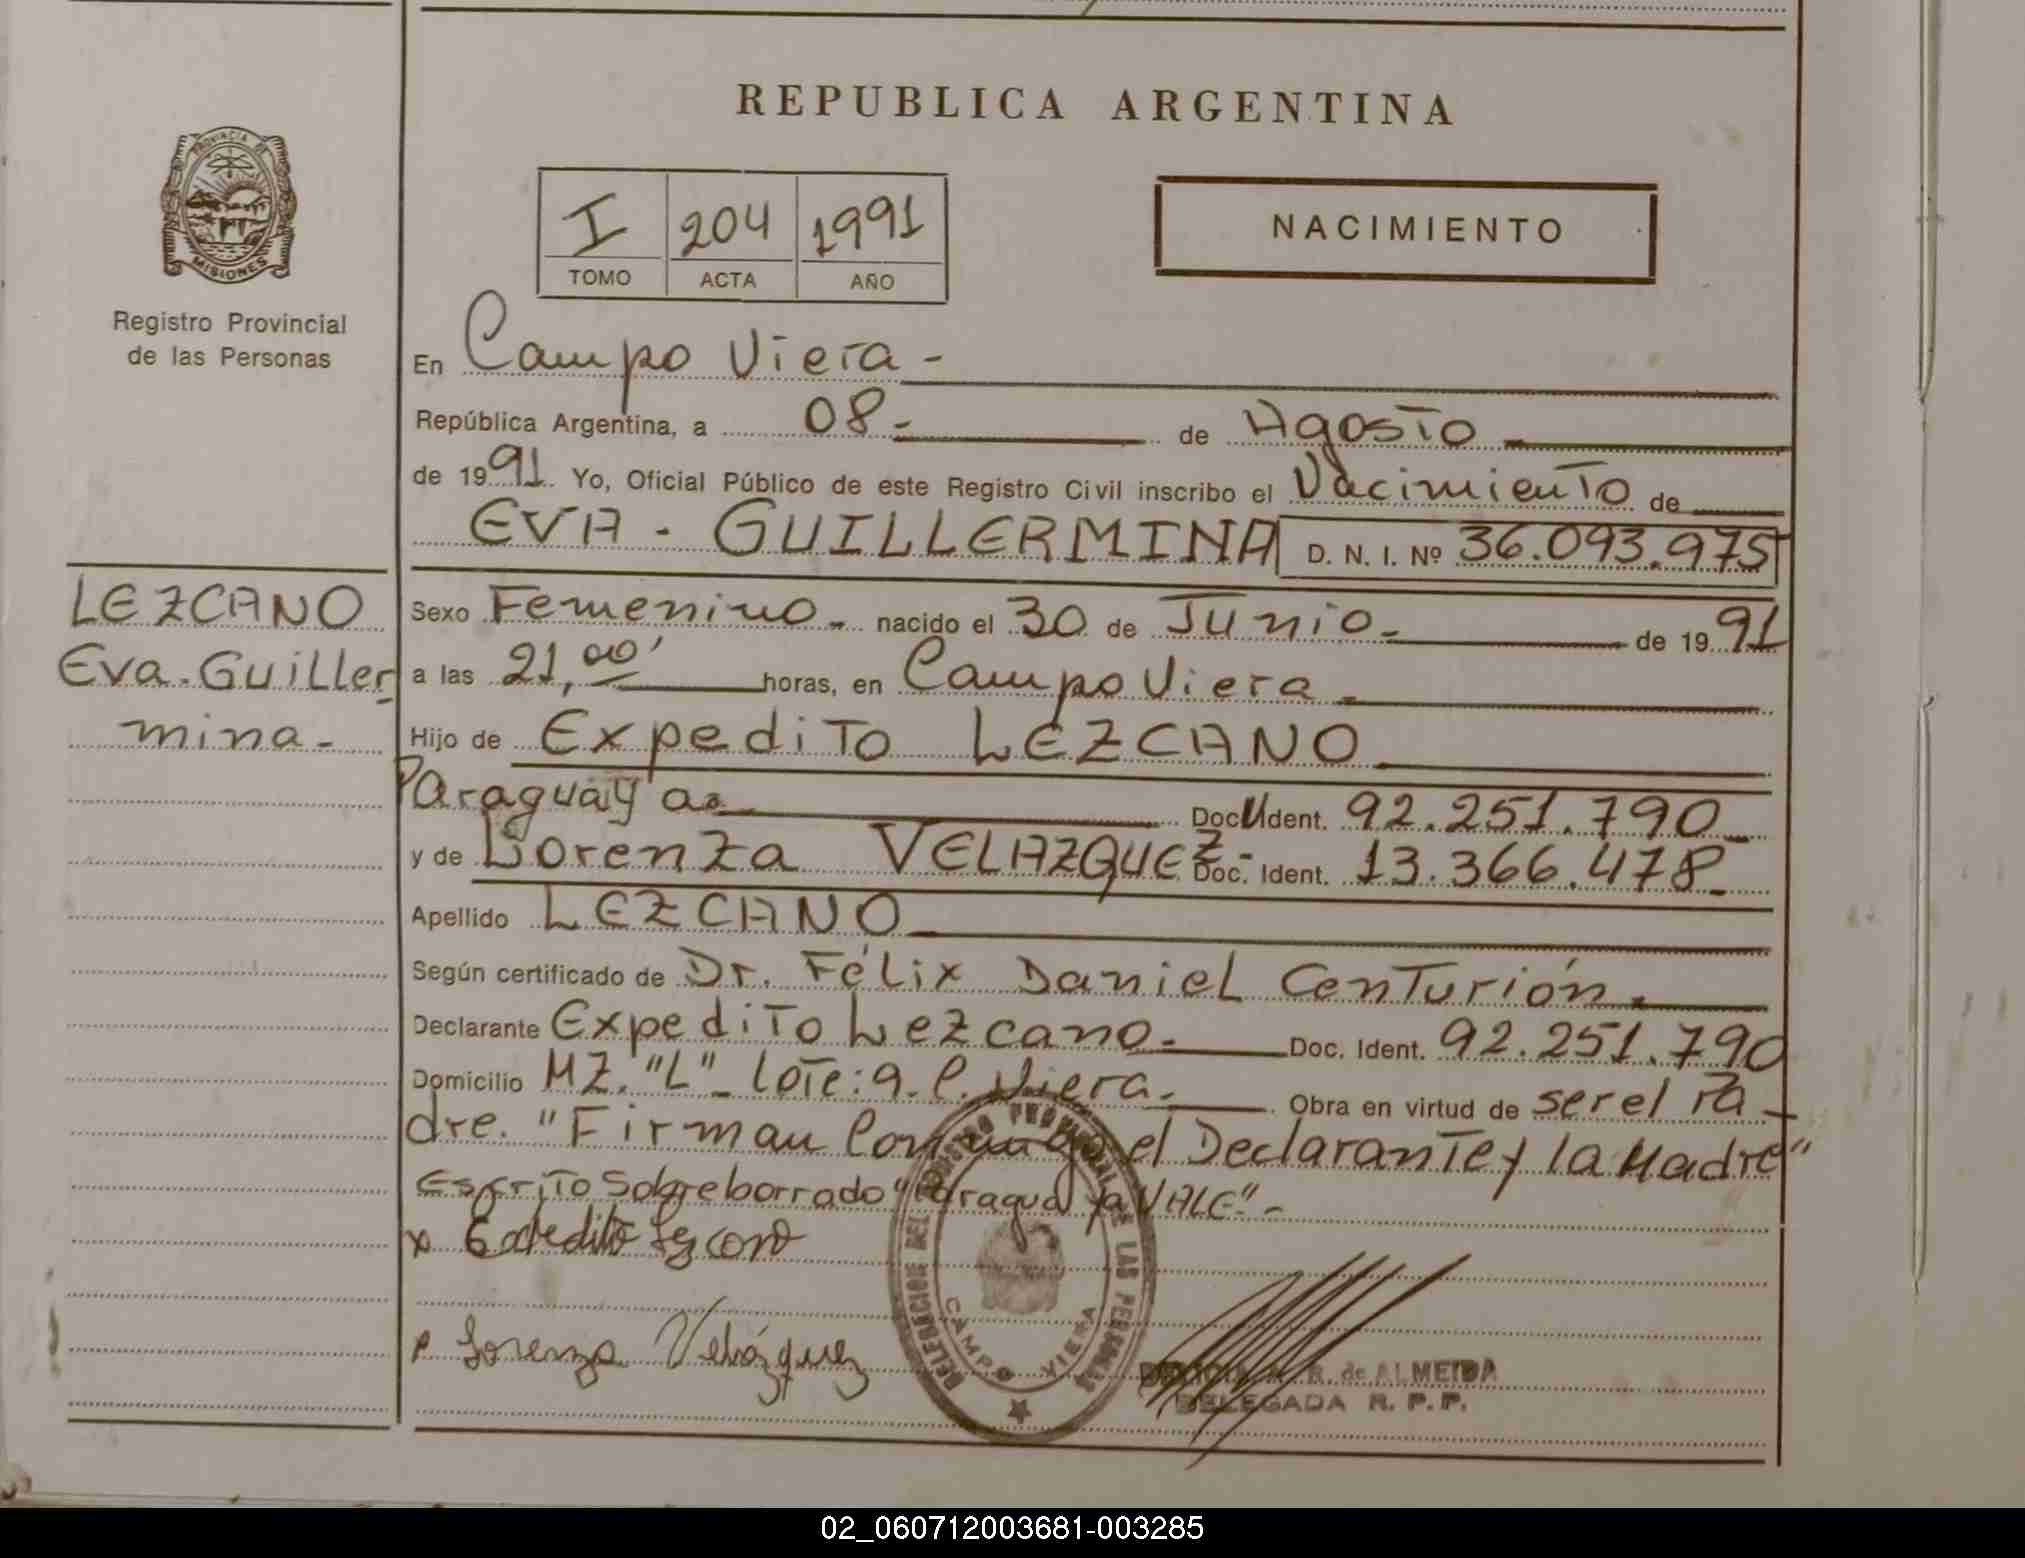 REPUBLICA ARGENTINA
PROVINCIA DE
MISIONES
Registro Provincial
de las Personas
I 204 1991
TOMO ACTA AÑO
NACIMIENTO
En Campo Viera -
República Argentina, a 08.- de Agosto
de 1991. Yo, Oficial Público de este Registro Civil inscribo el Nacimiento de
EVA - GUILLERMINA D. N. I. Nº 36.093.975
LEZCANO
Eva. Guiller
mina -
Sexo Femenino - nacido el 30 de Junio - de 1991
a las 21,00' horas, en Campo Viera -
Hijo de Expedito LEZCANO
Paraguaya Doc. Ident. 92.251.790 -
y de Lorenza VELAZQUEZ - Doc. Ident. 13.366.478 -
Apellido LEZCANO
Según certificado de Dr. Félix Daniel Centurión.
Declarante Expedito Lezcano - Doc. Ident. 92.251.790
Domicilio MZ. "L" - Lote: 9. C. Viera - Obra en virtud de ser el Pa -
dre. "Firman Conmigo el Declarante y la Madre"
Escrito Sobreborrado "Paraguaya VALE" -
x Expedito Lezcano
Lorenza Velázquez
DEL REGISTRO PROVINCIAL DE LAS PERSONAS
CAMPO VIERA
R. de ALMEIDA
DELEGADA R. P. P.
02_060712003681-003285